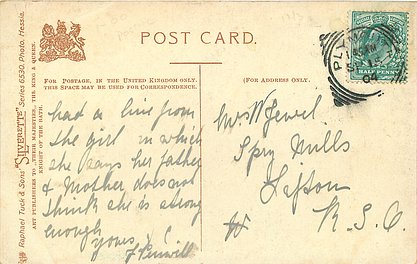 POST CARD.
FOR POSTAGE, IN THE UNITED KINGDOM ONLY,
THIS SPACE MAY BE USED FOR CORRESPONDENCE.
(FOR ADDRESS ONLY.
HALF PENNY
had a line from
the girl in which
she says her father
& Mother does not
think she is strong
enough
yours
Mrs W Jewel
Spry Mills
R.S.O.
Raphael Tuck & Sons' "SILVERETTE" Series 6530. Photo, Hessia.
ART PUBLISHERS TO THEIR MAJESTIES, THE KING & QUEEN.